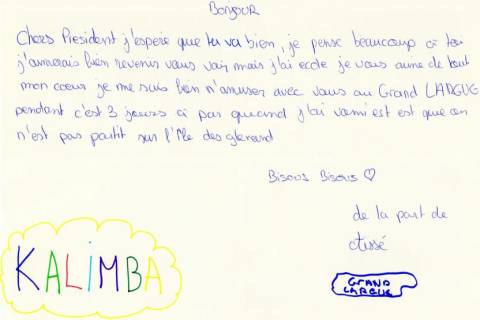 BONJOUR
Chers President j'espère que tu va bien, je pense beaucoup à toi
j'aimerais bien revenir vous voir mais j'ai ecole je vous aime de tout
mon coeur je me suis bien n'amuser avec vous au Grand LARGUE
pendant c'est 3 jours à par quand j'ai vomi est est que on
n'est pas partit sur l'île des glenand
Bisous Bisous ♡
de la part de
Assé
KALIMBA
GRAND
LARGUE